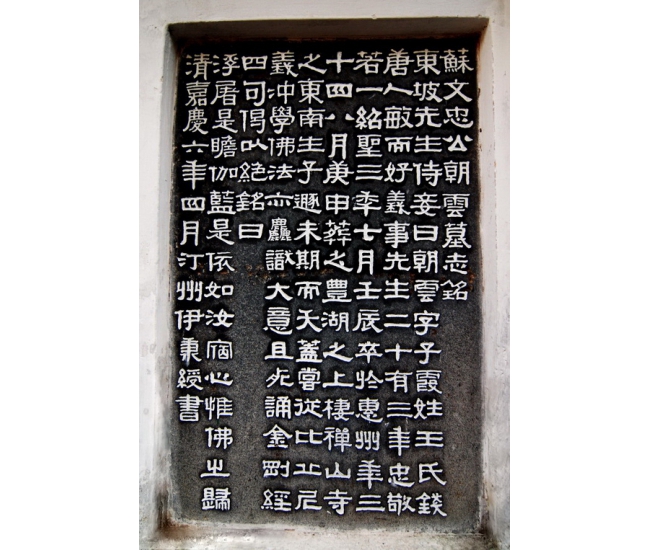 蘇文忠公朝雲墓志銘
東坡先生侍妾曰朝雲字子霞姓王氏錢
唐人敏而好義事先生二十有三年忠敬
若一紹聖三年七月壬辰卒於惠州年三
十四八月庚申葬之豐湖之上棲禪山寺
之東南生子遯未期而夭蓋嘗從比丘尼
義沖學佛法亦麤識大意且死誦金剛經
四句偈以絕銘曰
浮屠是瞻伽藍是依如汝宿心惟佛之歸
清嘉慶六年四月汀州伊秉綬書